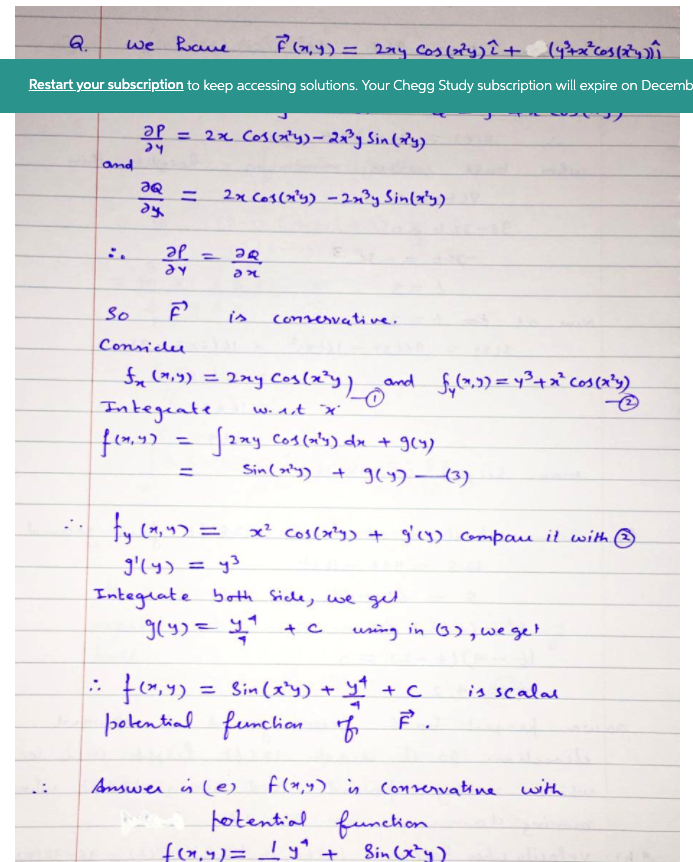 Q. We have F⃗(x,y) = 2xy Cos(x²y) î + (y³+x²cos(x²y)) ĵ
Restart your subscription to keep accessing solutions. Your Chegg Study subscription will expire on Decemb
∂P/∂y = 2x Cos(x²y) – 2x³y Sin(x²y)
and
∂Q/∂x = 2x Cos(x²y) – 2x³y Sin(x²y)
∴ ∂P/∂y = ∂Q/∂x
So F⃗ is conservative.
Consider
fₓ(x,y) = 2xy Cos(x²y) —① and f_y(x,y) = y³+x² Cos(x²y) —②
Integrate w.r.t 'x'
f(x,y) = ∫2xy Cos(x²y) dx + g(y)
= Sin(x²y) + g(y) —(3)
∴ f_y(x,y) = x² cos(x²y) + g'(y) compare it with ②
g'(y) = y³
Integrate both side, we get
g(y) = y⁴/4 + c using in (3), we get
∴ f(x,y) = Sin(x²y) + y⁴/4 + C is scalar
potential function of F⃗.
∴ Answer is (e) f(x,y) is conservative with
potential function
f(x,y) = 1 y⁴ + Sin(x²y)